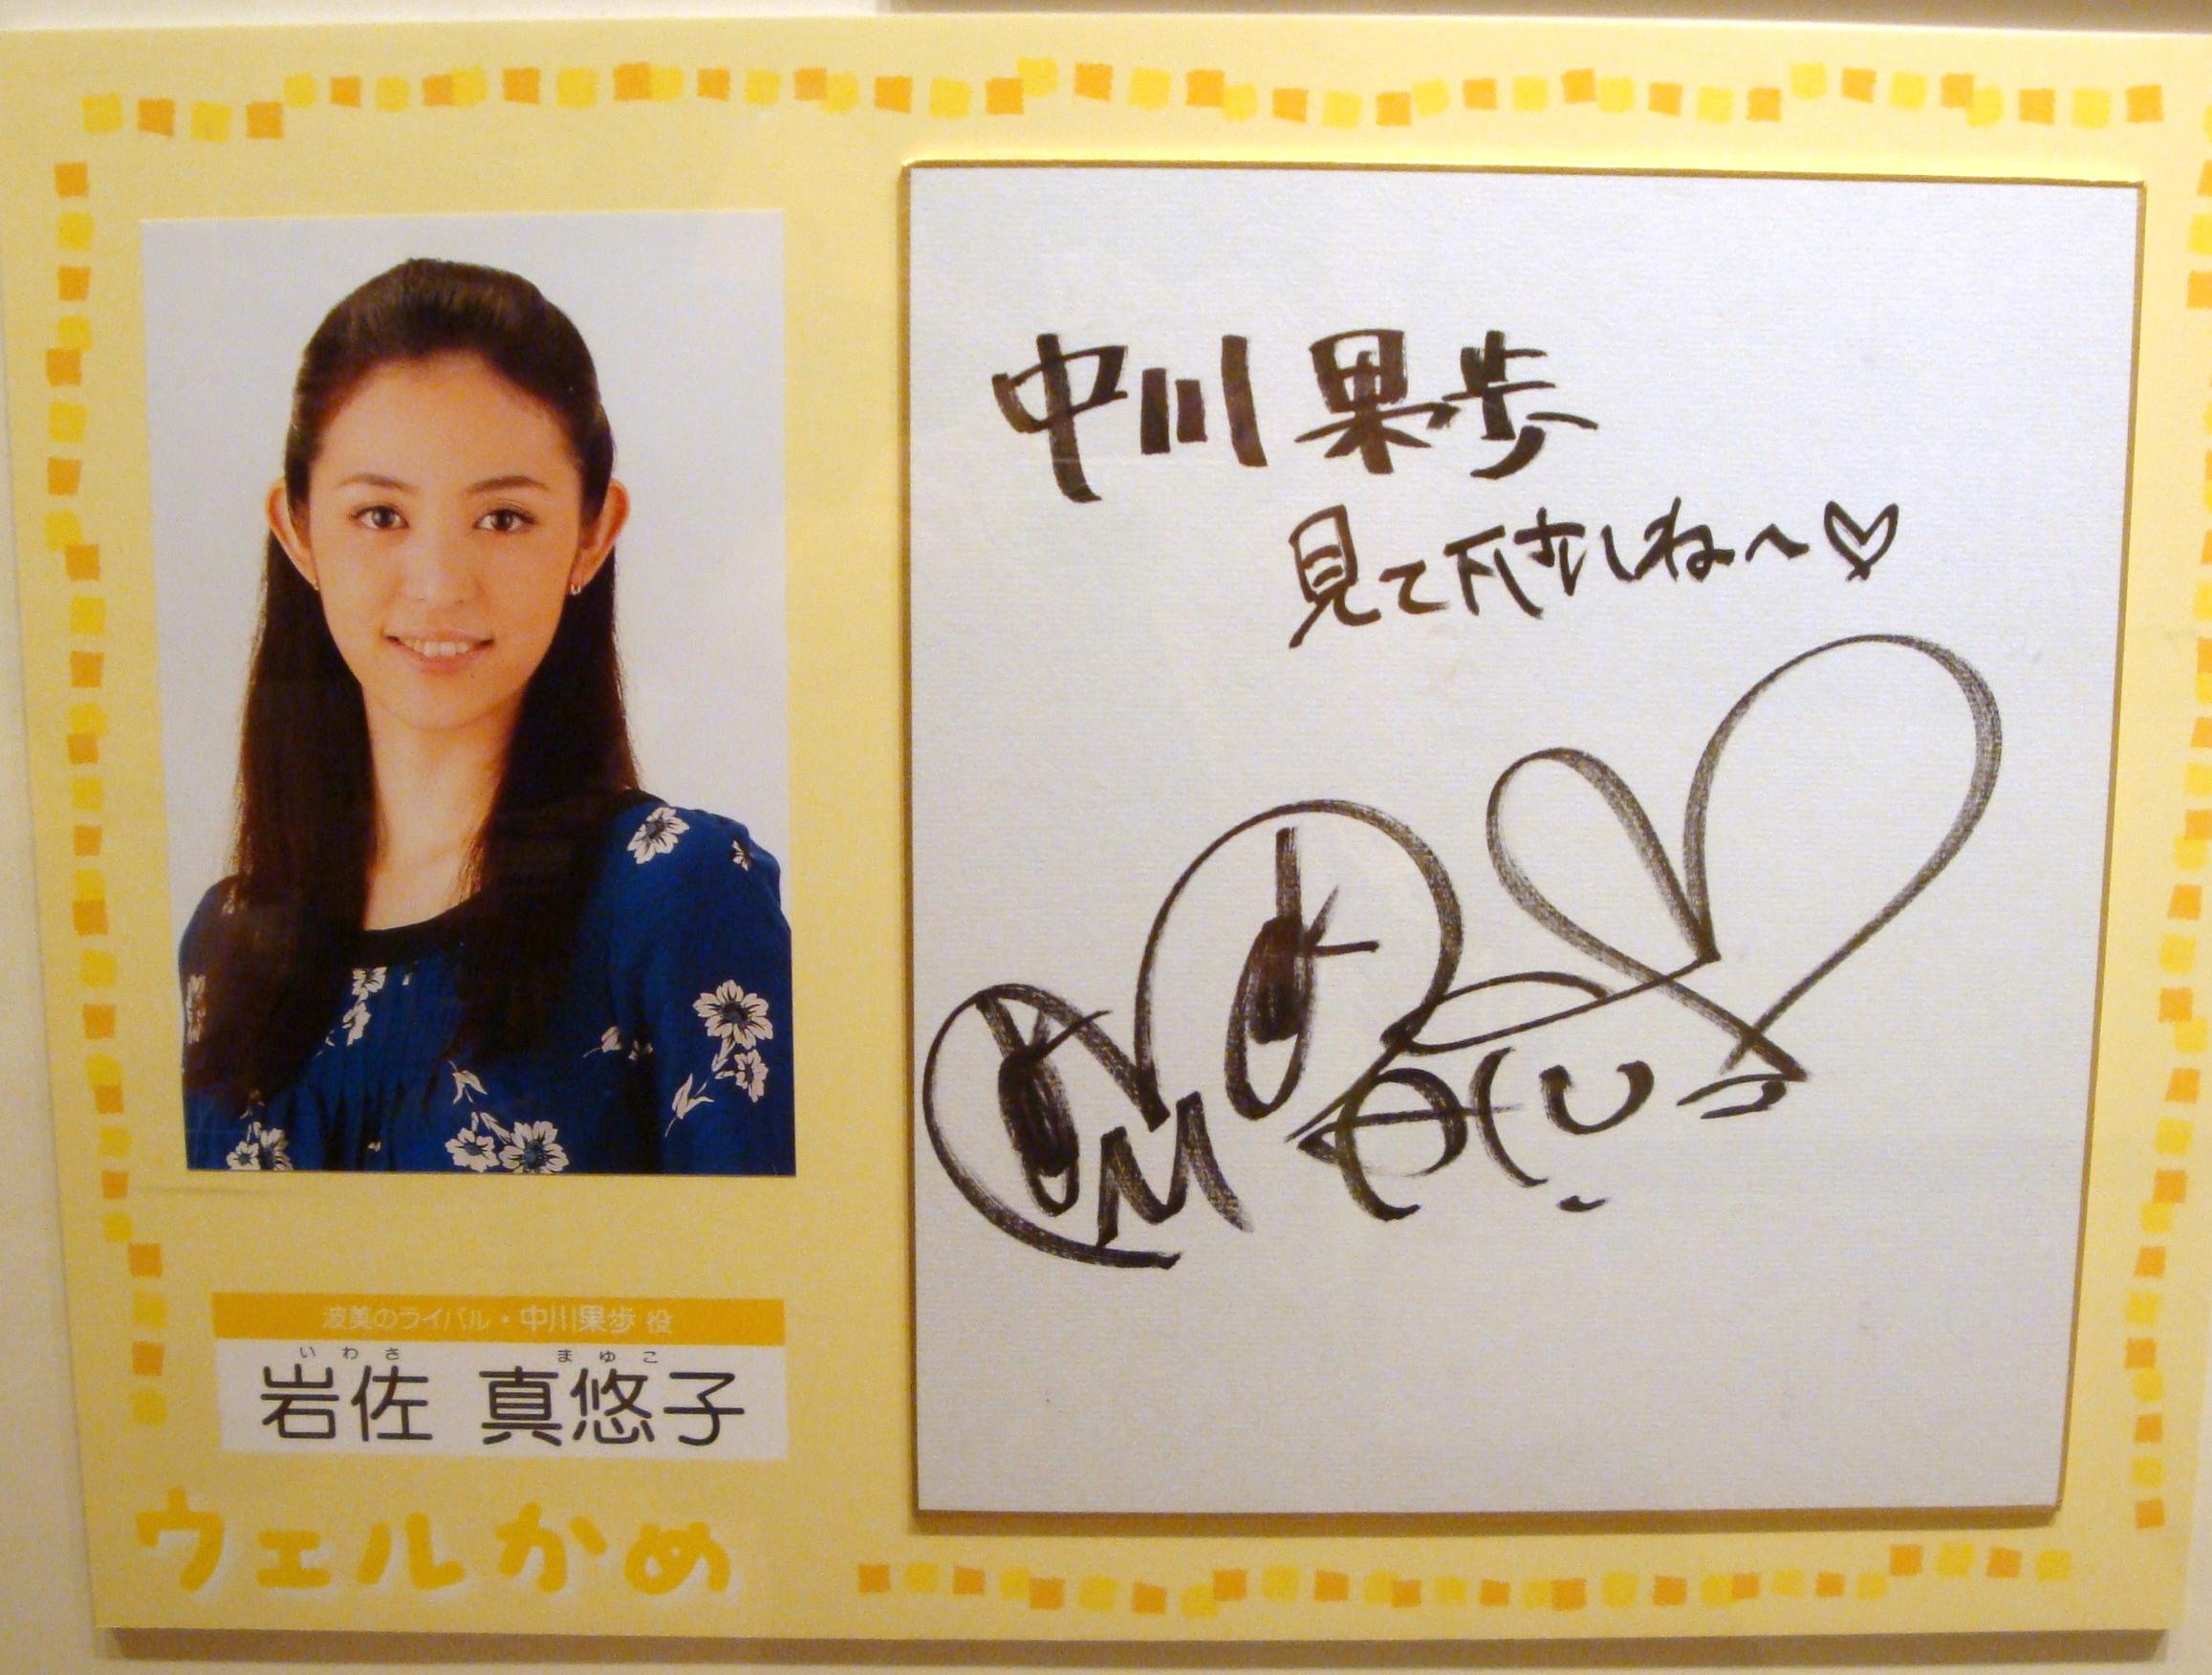 波美のライバル・中川果歩 役
いわさ まゆこ
岩佐 真悠子
ウェルかめ
中川果歩
見て下さいね〜♡